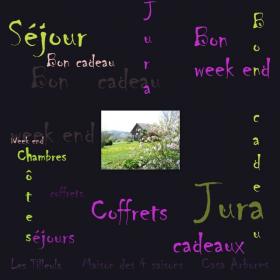 Séjour
Jura
Bon
week end
Bon cadeau
Bon cadeau
Bon cadeau
week end
Week end
Chambres
hôtes
coffrets
Coffrets
Jura
séjours
cadeaux
Les Tilleuls
Maison des 4 saisons
Casa Arbores